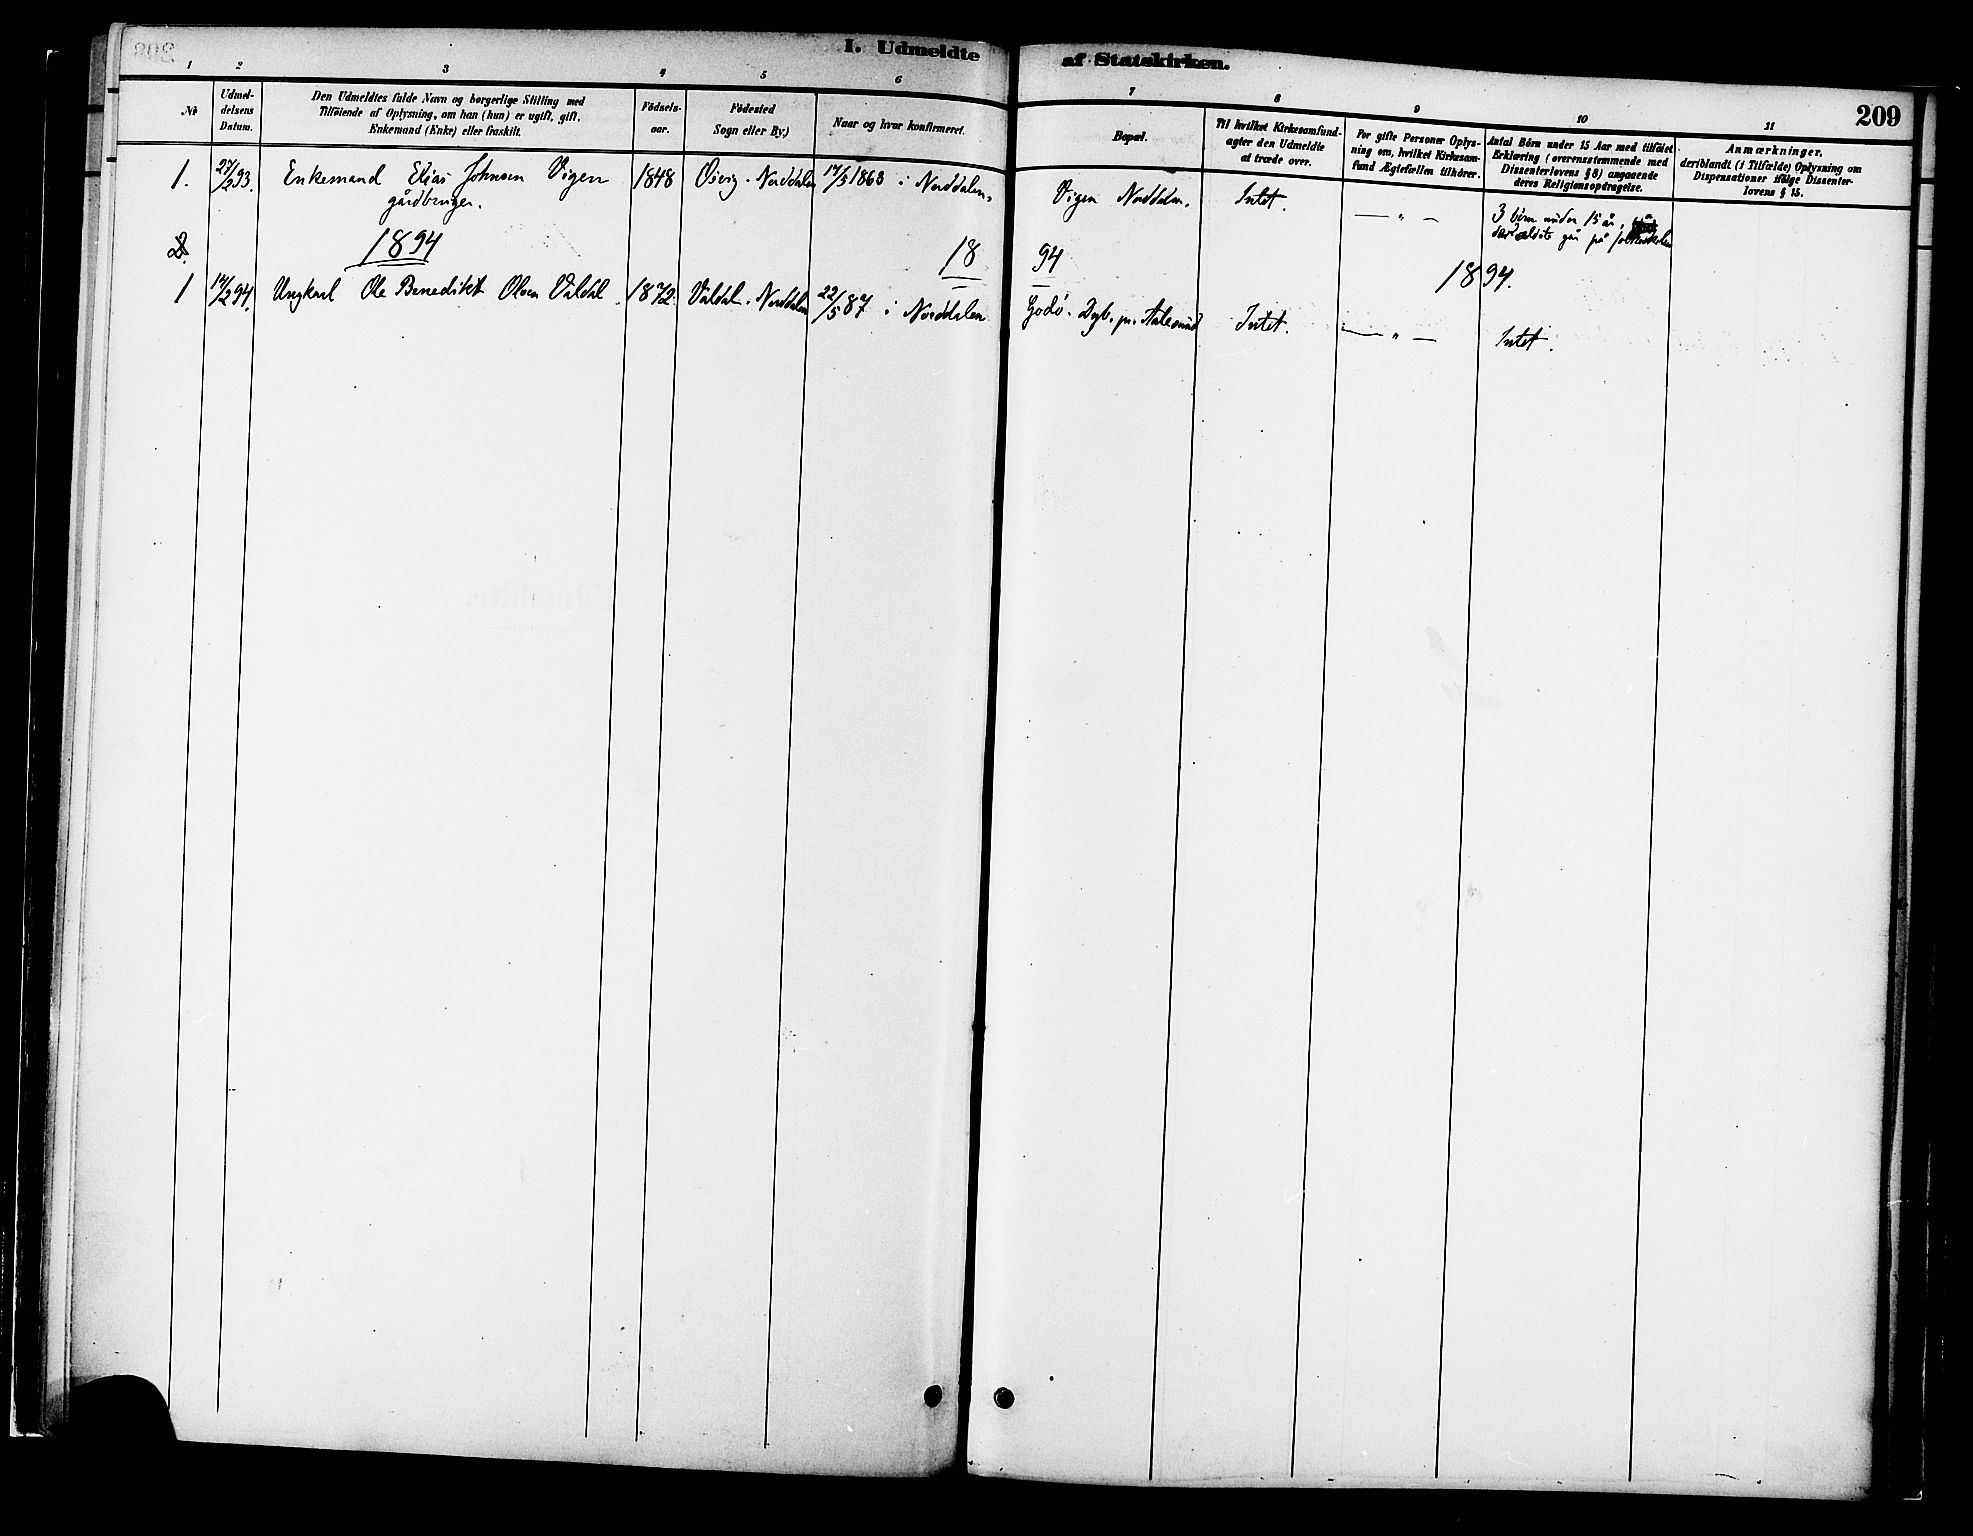 I. Udmeldte af Statskirken.
209
1 2 3 4 5 6 7 8 9 10 11
No
Udmel-
delsens
Datum.
Den Udmeldtes fulde Navn og borgerlige Stilling med
Tilføiende af Oplysning, om han (hun) er ugift, gift,
Enkemand (Enke) eller fraskilt.
Fødsels-
aar.
Fødested
Sogn eller By.)
Naar og hvor konfirmeret.
Bopæl.
Til hvilket Kirkesamfund-
agter den Udmeldte
at træde over.
For gifte Personer Oplys-
ning om, hvilket Kirkesam-
fund Ægtefællen tilhører.
Antal Børn under 15 Aar med tilføiet
Erklæring (overensstemmende med
Dissenterlovens § 8) angaaende
deres Religionsopdragelse.
Anmærkninger.
deriblandt (i Tilfælde) Oplysning om
Dispensationer ifølge Dissenter-
lovens § 15.
1. 27/2 93. Enkemand Elias Johnsen Vigen 1848 Norddalen 14/5 1863 i Norddalen. Vigen Norddalen. Intet. — " — 3 børn under 15 år,
gårdbruger. ældste går på folkeskolen
1894 18 94 1894.
1 14/2 94. Ungkarl Ole Benedikt Olsen Valdal. 1872. Valdal. Norddalen 22/5 87 i Norddalen Godø. Dgb. pr. Aalesund Intet. — " — Intet.